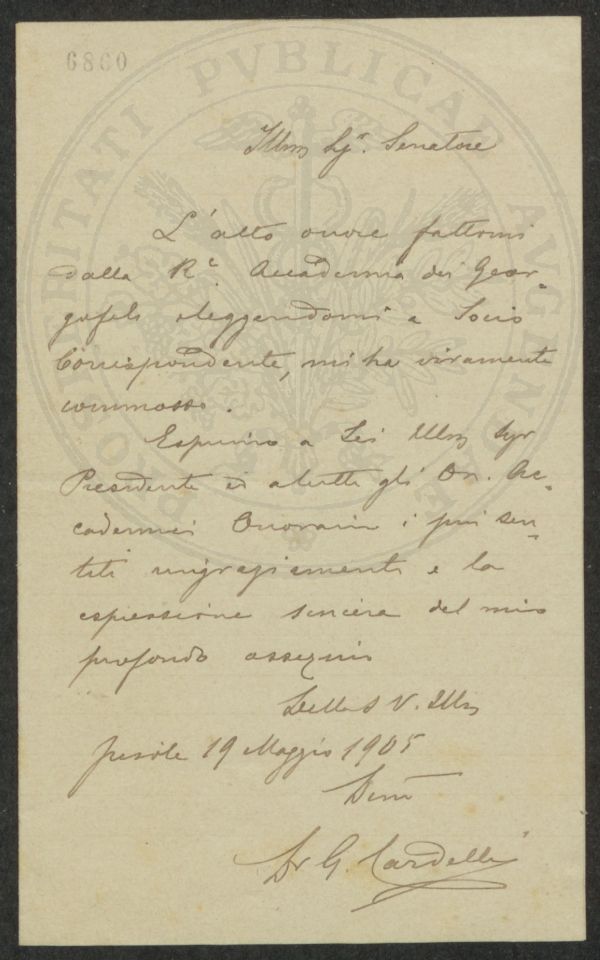 6860
PROSPERITATI PVBLICAE AVGENDAE
Illmo Sigr. Senatore
L'alto onore fattomi
dalla Re. Accademia dei Geor-
gofili eleggendomi a Socio
Corrispondente, mi ha vivamente
commosso.
Esprimo a Lei Illmo Sigr
Presidente ed a tutti gli On. Ac-
cademici Onorari i più sen-
titi ringraziamenti e la
espressione sincera del mio
profondo ossequio
Della S V. Illma
Fiesole 19 Maggio 1905
Dr G. Cardelli